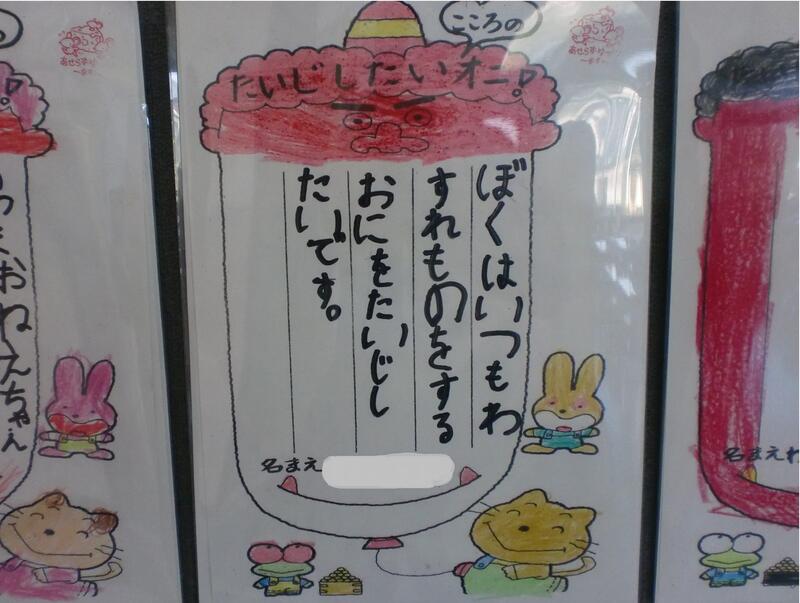 こころの
たいじしたいオニ!
ぼくはいつもわ
すれものをする
おにをたいじし
たいです。
名まえ
おねえちゃん
名まえ